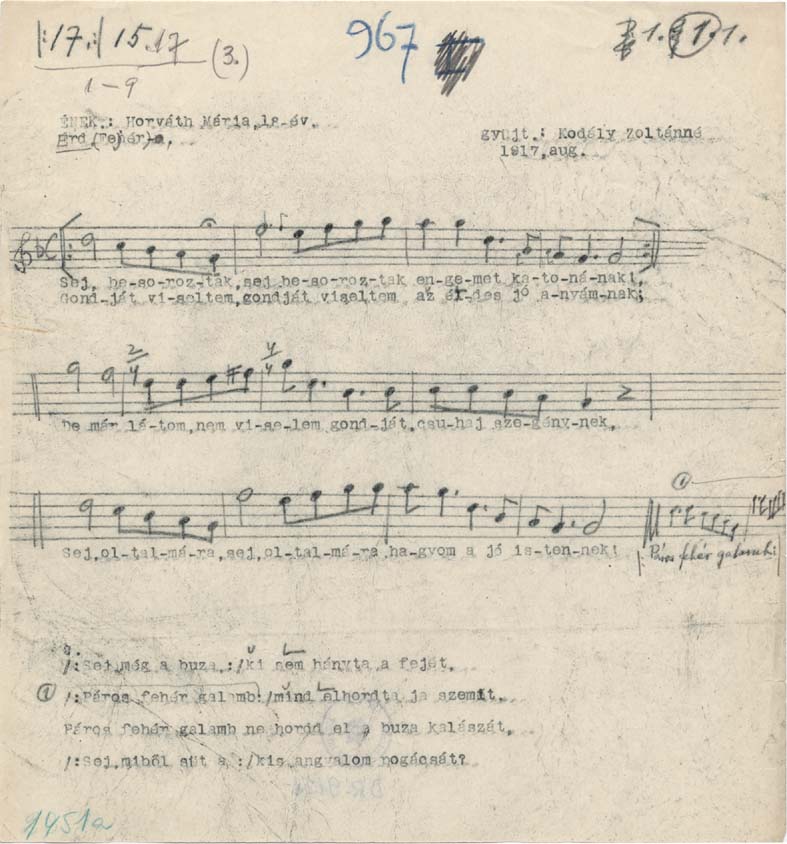 |:17.:| 15.17 (3.)
1-9
967
1.1.
ÉNEK.: Horváth Mária, 18-év.
Érd (Fehér)-m,
gyujt.: Kodály Zoltánné
1917, aug.
Sej, be-so-roz-tak, sej be-so-roz-tak en-ge-met ka-to-ná-nak!,
Gond-ját vi-seltem, gondját viseltem az ér-des jó a-nyám-nak;
2/4 4/4
De már lá-tom, nem vi-se-lem gond-ját, csu-haj sze-gény-nek,
Sej, ol-tal-má-ra, sej, ol-tal-má-ra ha-gyom a jó is-ten-nek!
①
|: Páros fehér galamb :|
/:Sej, még a buza :/ki nem hányta a fejét,
① /:Páros fehér galamb:/mind elhordta ja szemit.
Páros fehér galamb ne hordd el a buza kalászát,
/:Sej, miből süt a :/kis angyalom pogácsát?
1451a